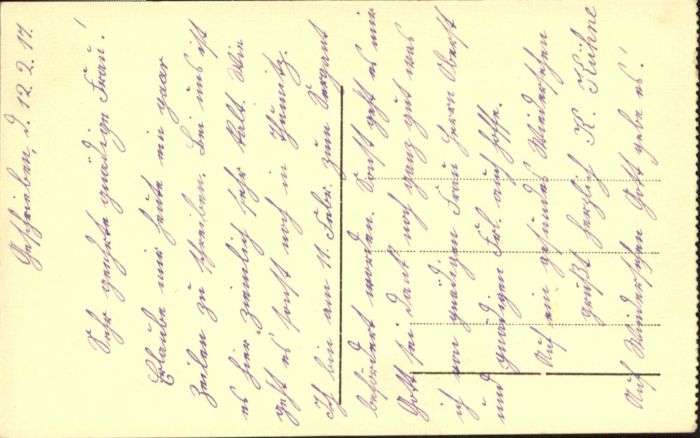 Geschrieben, d. 12.2.17.
Sehr geehrte gnädige Frau!
Erlaube mir heute ein paar
Zeilen zu schreiben. Bei uns ist
es hier ziemlich sehr kalt. Wie
geht es sonst noch in
Ich bin am 11. Febr. zum Sergant
befördert worden. Sonst geht es mir
Gott sei Dank noch ganz gut was
ich von gnädigen Frau Herrn Oberst
und gnädigen Frl. auch hoffe.
Auf ein gesundes Wiedersehen
grüßt herzlich K. Kühne
Auf Wiedersehen Gott gebe es!